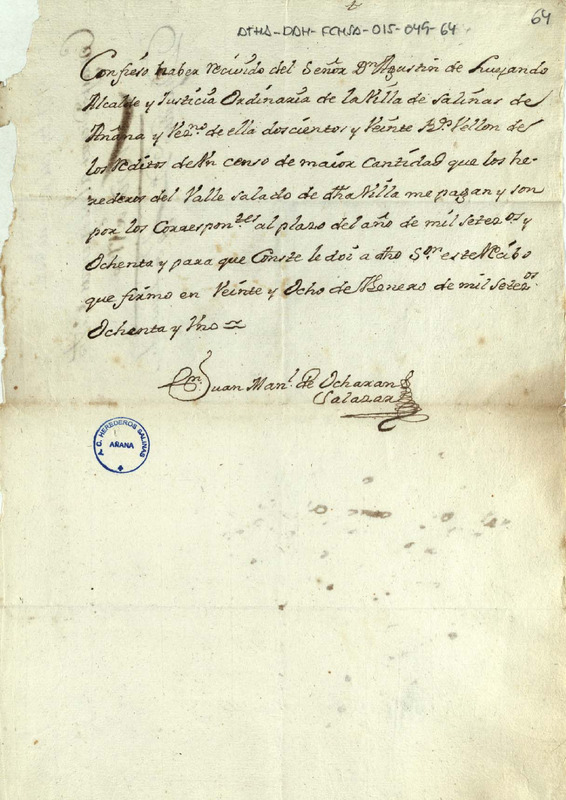 64
ATHA-DAH-FCHSA-015-049-64
Confieso haber recivido del Señor Dn Agustin de Luyando
Alcalde y Justicia Ordinaria de la Villa de Salinas de
Añana y Vezno de ella doscientos y Veinte Rs Vellon de
los reditos de Un censo de maior Cantidad que los he-
rederos del Valle salado de dha Villa me pagan y son
por los Correspontes al plazo del año de mil setezos y
Ochenta y para que Conste le doi a dho Sor este Recibo
que firmo en Veinte y Ocho de Henero de mil setezos
Ochenta y Uno
Juan Manl de Ocharan
Salazar
A. C. HEREDEROS SALINAS
AÑANA